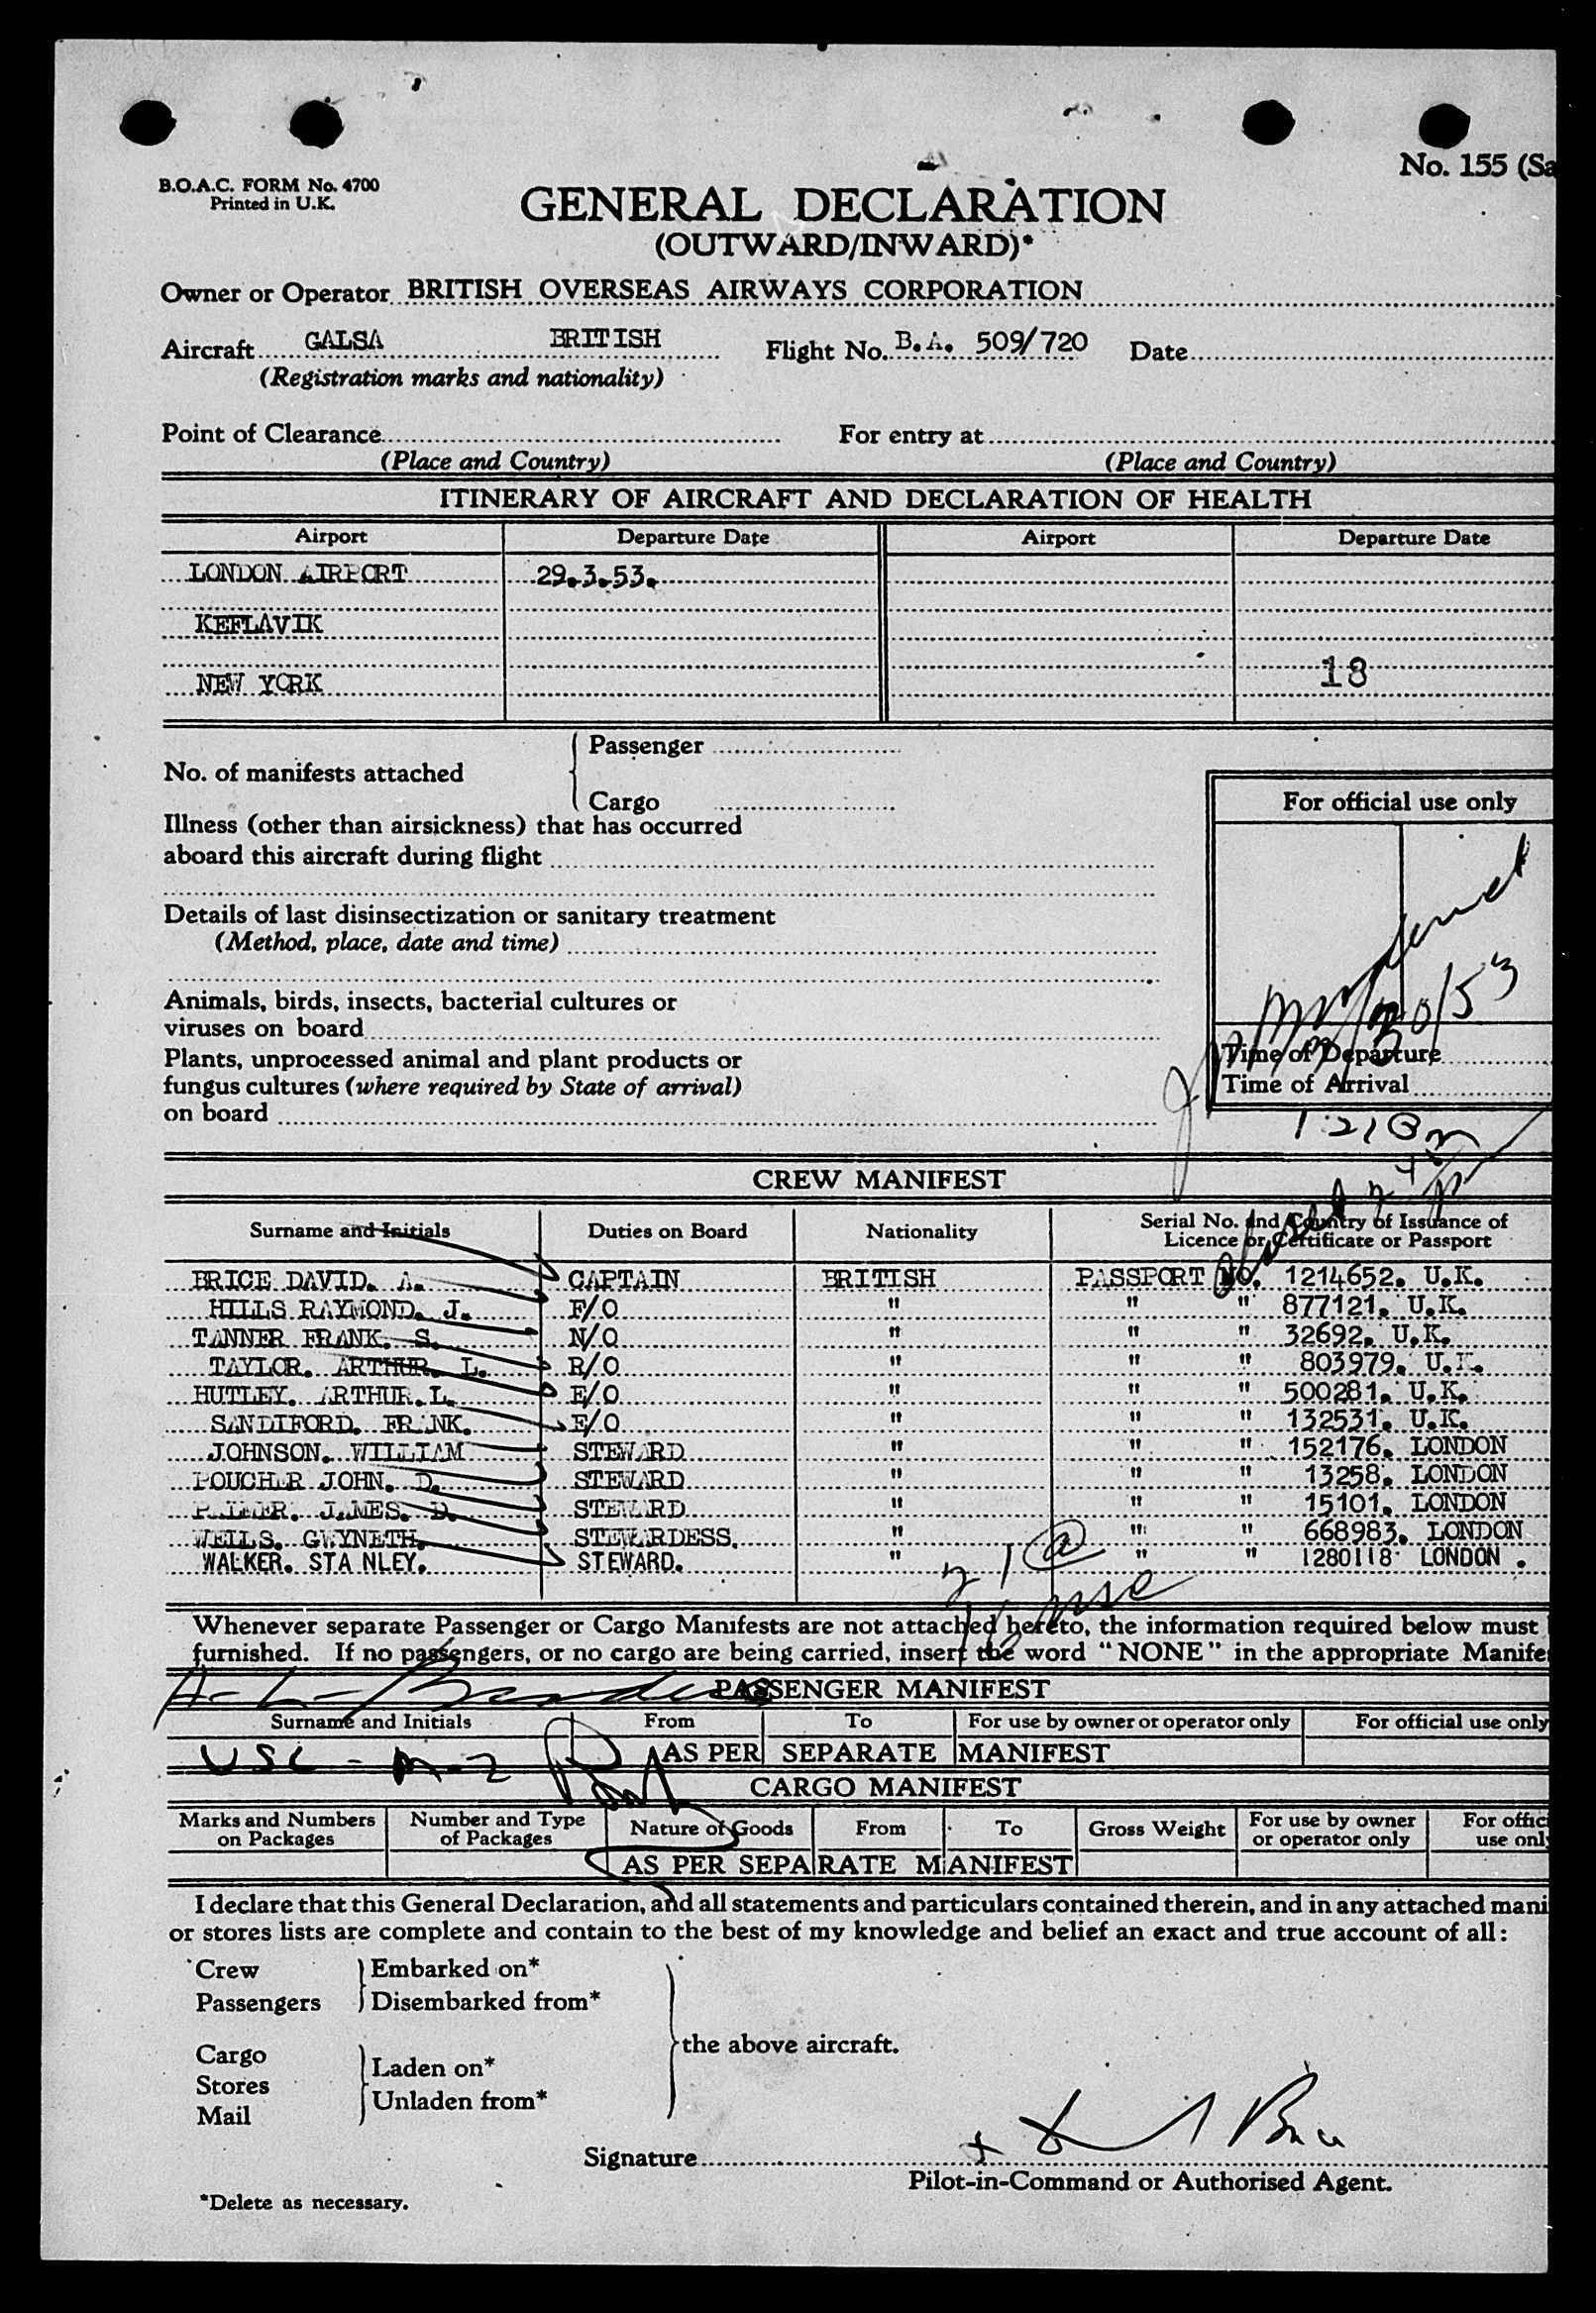 No. 155 (Sa
B.O.A.C. FORM No. 4700
Printed in U.K.
GENERAL DECLARATION
(OUTWARD/INWARD)*
Owner or Operator BRITISH OVERSEAS AIRWAYS CORPORATION
Aircraft GALSA BRITISH Flight No. B.A. 509/720 Date
(Registration marks and nationality)
Point of Clearance For entry at
(Place and Country) (Place and Country)
ITINERARY OF AIRCRAFT AND DECLARATION OF HEALTH
Airport Departure Date Airport Departure Date
LONDON AIRPORT 29.3.53.
KEFLAVIK
NEW YORK 18
Passenger
No. of manifests attached
Cargo
For official use only
Illness (other than airsickness) that has occurred
aboard this aircraft during flight
Details of last disinsectization or sanitary treatment
(Method, place, date and time)
Animals, birds, insects, bacterial cultures or
viruses on board
Plants, unprocessed animal and plant products or
fungus cultures (where required by State of arrival)
on board
Time of Departure
Time of Arrival
CREW MANIFEST
Surname and Initials Duties on Board Nationality Serial No. and Country of Issuance of
Licence or Certificate or Passport
BRICE DAVID. A. CAPTAIN BRITISH PASSPORT NO. 1214652. U.K.
HILLS RAYMOND. J. F/O " " " 877121. U.K.
TANNER FRANK. S. N/O " " " 32692. U.K.
TAYLOR. ARTHUR. L. R/O " " " 803979. U.K.
HUTLEY. ARTHUR.L. E/O " " " 500281. U.K.
SANDIFORD. FRANK. E/O " " " 132531. U.K.
JOHNSON. WILLIAM STEWARD " " " 152176. LONDON
POUCHER JOHN. D. STEWARD " " " 13258. LONDON
PALMER. JAMES. D. STEWARD " " " 15101. LONDON
WELLS. GWYNETH. STEWARDESS. " " " 668983. LONDON
WALKER. STANLEY. STEWARD. " " " 1280118 LONDON .
Whenever separate Passenger or Cargo Manifests are not attached hereto, the information required below must
furnished. If no passengers, or no cargo are being carried, insert the word "NONE" in the appropriate Manife
PASSENGER MANIFEST
Surname and Initials From To For use by owner or operator only For official use only
AS PER SEPARATE MANIFEST
CARGO MANIFEST
Marks and Numbers on Packages Number and Type of Packages Nature of Goods From To Gross Weight For use by owner or operator only For offici use onl
AS PER SEPARATE MANIFEST
I declare that this General Declaration, and all statements and particulars contained therein, and in any attached mani
or stores lists are complete and contain to the best of my knowledge and belief an exact and true account of all:
Crew Embarked on*
Passengers Disembarked from*
the above aircraft.
Cargo
Laden on*
Stores
Unladen from*
Mail
Signature
Pilot-in-Command or Authorised Agent.
*Delete as necessary.